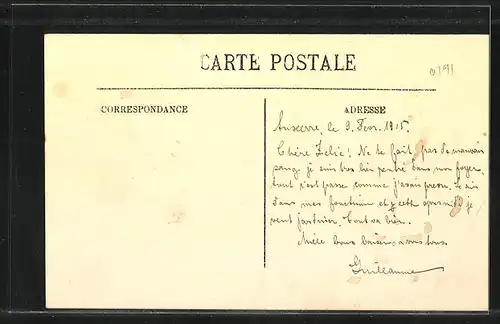 CARTE POSTALE
0791
CORRESPONDANCE
ADRESSE
Auxerre, le 9. Fevr. 1915.
Chère Zelie! Ne te fait pas de mauvais
sang je suis tres bien rentré dans mon foyer
tout s'est passe comme j'avais prevu. Je suis
dans mes fonctions et cette apres midi je
vent jardinier. Tout va bien.
Mille bons baisers a vous tous.
Guillaume